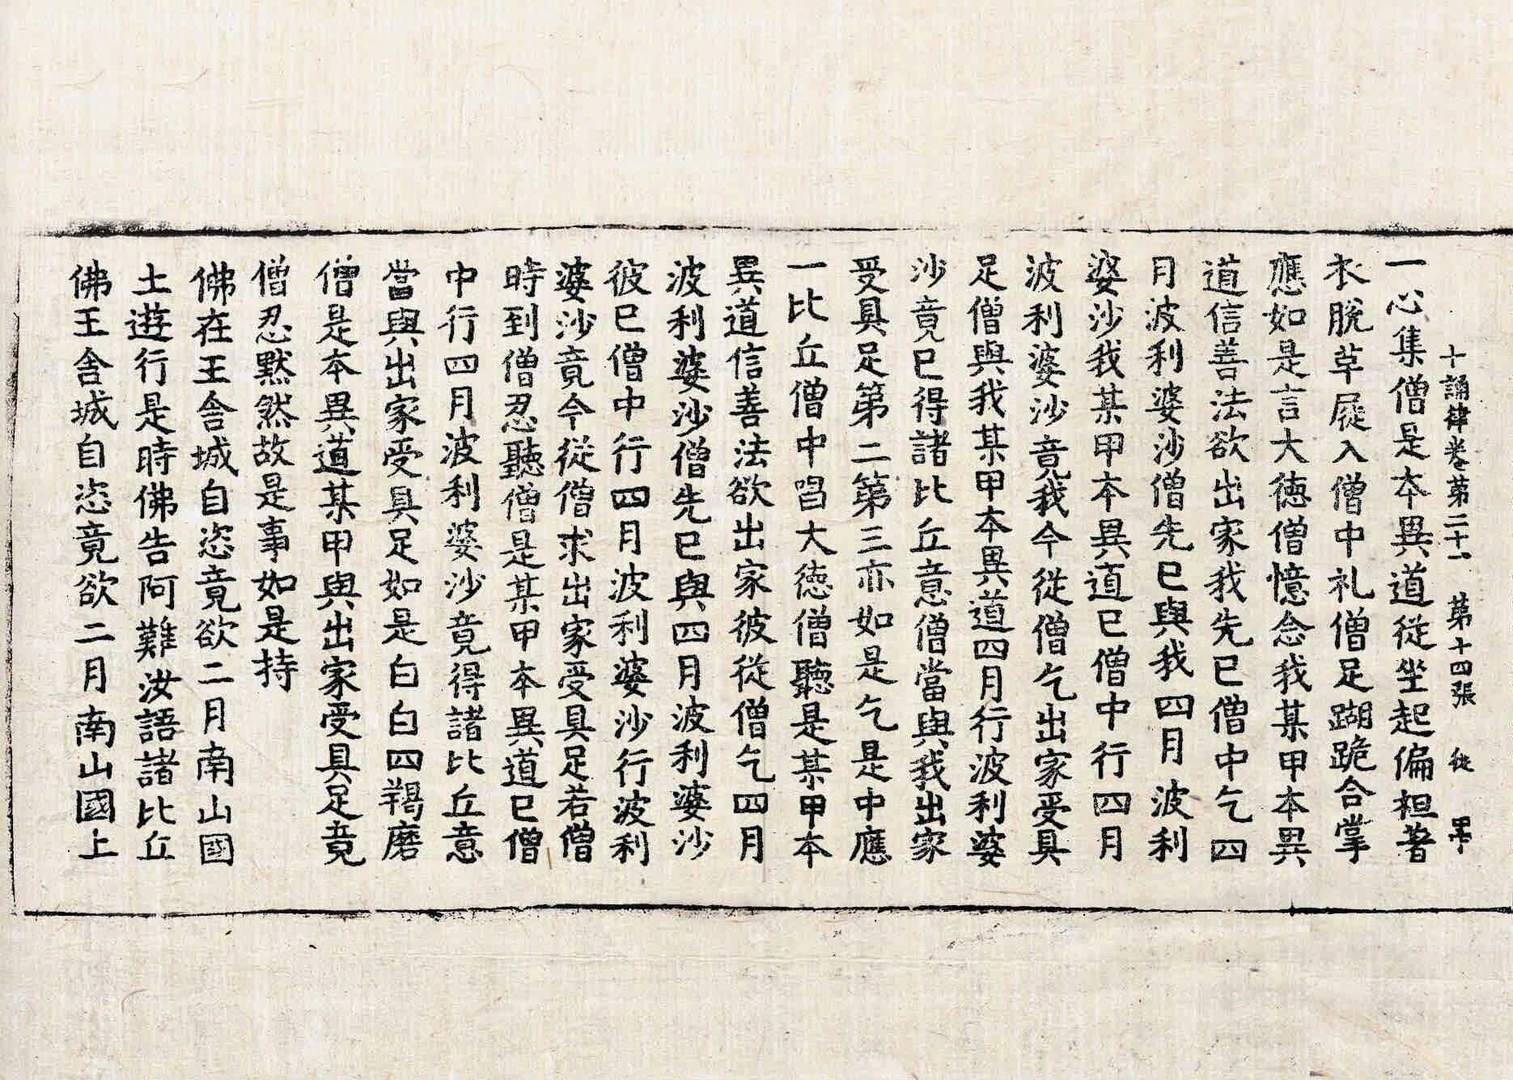 十誦律卷第二十一 第十四張 從
一心集僧是本異道從坐起偏袒著
衣脫草屣入僧中礼僧足蹦跪合掌
應如是言大徳僧憶念我某甲本異
道信善法欲出家我先已僧中乞四
月波利婆沙僧先已與我四月波利
婆沙我某甲本異道已僧中行四月
波利婆沙竟我今從僧乞出家受具
足僧與我某甲本異道四月行波利婆
沙竟已得諸比丘意僧當與我出家
受具足第二第三亦如是乞是中應
一比丘僧中唱大徳僧聽是某甲本
異道信善法欲出家彼從僧乞四月
波利婆沙僧先已與四月波利婆沙
彼已僧中行四月波利婆沙行波利
婆沙竟今從僧求出家受具足若僧
時到僧忍聽僧是某甲本異道已僧
中行四月波利婆沙竟得諸比丘意
當與出家受具足如是白白四羯磨
僧是本異道某甲與出家受具足竟
僧忍黙然故是事如是持
佛在王舍城自恣竟欲二月南山國
土遊行是時佛告阿難汝語諸比丘
佛王舍城自恣竟欲二月南山國上